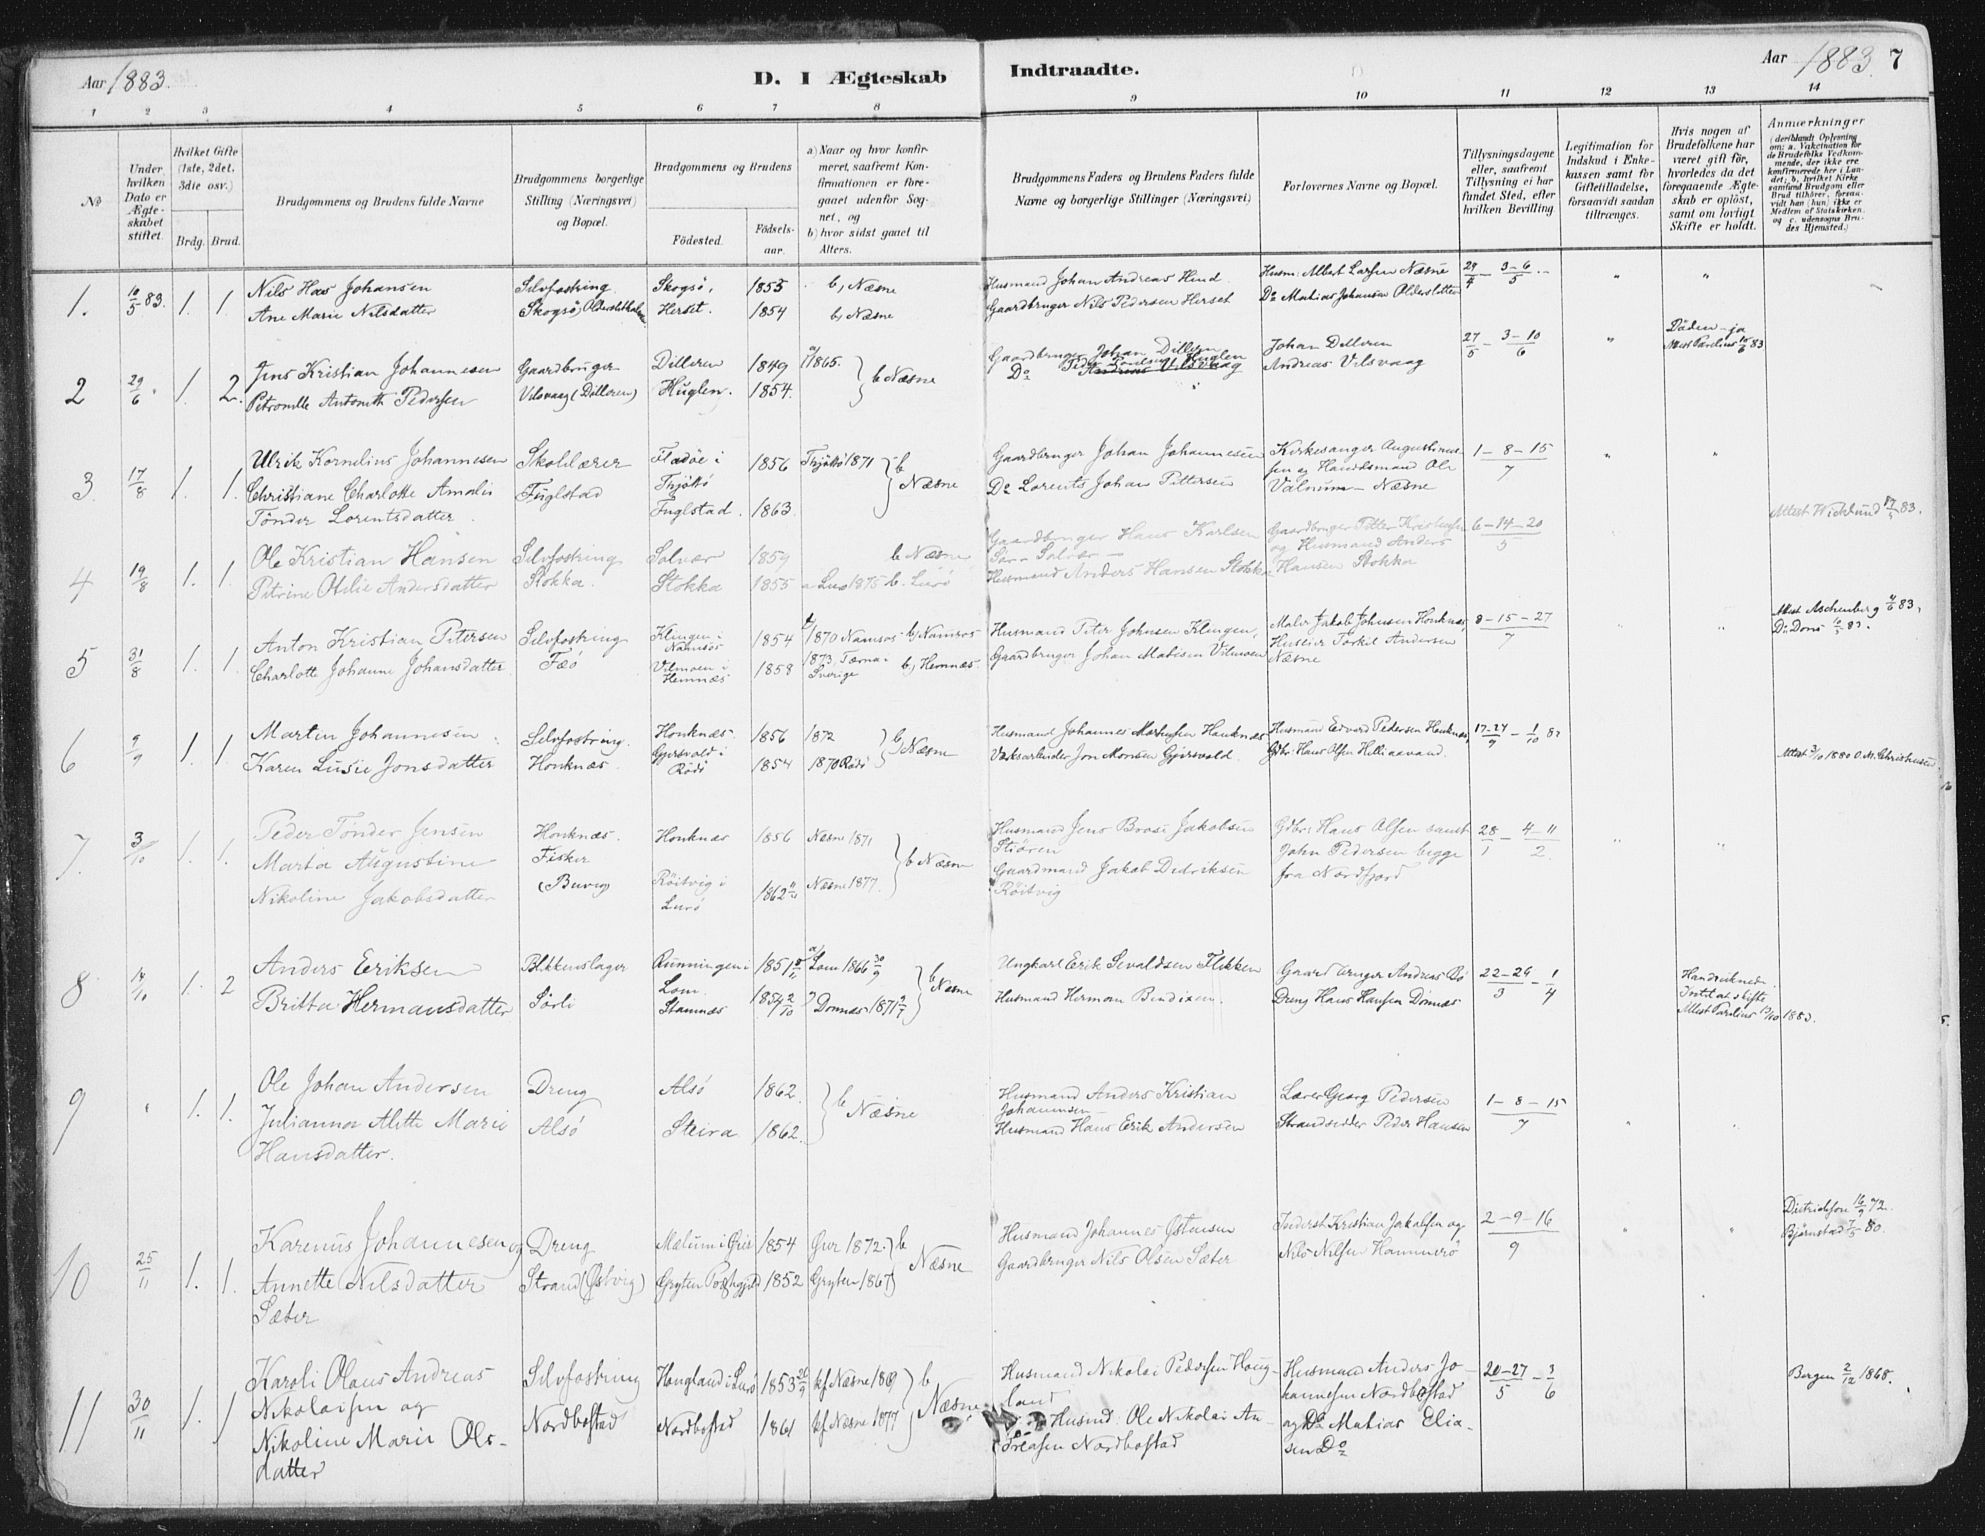 Aar 1883.
D. I Ægteskab
Indtraadte.
Aar 1883. 7
1 2 3 4 5 6 7 8 9 10 11 12 13 14
No
Under hvilken Dato er Ægteskabet stiftet.
Hvilket Gifte (1ste, 2det, 3die osv.)
Brdg. Brud.
Brudgommens og Brudens fulde Navne
Brudgommens borgerlige Stilling (Næringsvei) og Bopæl.
Brudgommens og Brudens
Födested. Födselsaar.
a) Naar og hvor konfirmeret, saafremt Konfirmationen er foregaaet udenfor Sognet, og
b) hvor sidst gaaet til Alters.
Brudgommens Faders og Brudens Faders fulde Navne og borgerlige Stillinger (Næringsvei)
Forlovernes Navne og Bopæl.
Tillysningsdagene eller, saafremt Tillysning ei har fundet Sted, efter hvilken Bevilling.
Legitimation for Indskud i Enkekassen samt for Giftetilladelse, forsaavidt saadan tiltrænges.
Hvis nogen af Brudefolkene har været gift för, hvorledes da det foregaaende Ægteskab er oplöst, samt om lovligt Skifte er holdt.
Anmærkninger
(deriblandt Oplysning om: a. Vakcination for de Brudefolks Vedkommende, der ikke ere konfirmerede her i Landet; b. hvilket Kirkesamfund Brudgom eller Brud tilhörer, forsaavidt han (hun) ikke er Medlem af Statskirken, og c. udensogns Brudes Hjemsted.)
1. 10/5 83. 1. 1. Nils Has Johansen Selvfostring Skogsö, 1855 b, Næsne Husmand Johan Andreas Hind Husm: Albert Larsen Næsne 29/4 - 3-6/5 "
Ane Marie Nilsdatter Skogsö Herset. 1854 b, Næsne Gaardbruger Nils Pedersen Herset Do Mathias Johansen Oldersletten
2 29/6 1. 2. Jens Kristian Johannesen Gaardbruger Dilleren 1849 a 1865. b Næsne Gaardbruger Johan Dilleren Johan Dilleren 27/5 - 3-10/6 " Döden - ja Attest Parelius 83
Petronelle Antonette Pedersen Vilsvaag (Dilleren) Huglen. 1854. Do Peder Huglen Andreas Vilsvaag
3. 17/8 1. 1. Ulrik Kornelius Johannesen Skolelærer Flatöe i Thjöttö 1856 Thjöttö 1871 b Næsne Gaardbruger Johan Johannesen Kirkesanger Augustinussen og Handelsmand Ole Valnum - Næsne 1-8-15/7 " "
Christiane Charlotte Amalie Tönder Lorentsdatter. Fuglstad Fuglstad. 1863. Do Lorents Johan Pettersen
4 19/8 1. 1. Ole Kristian Hansen Selvfostring Solvær 1859 b Næsne Gaardbruger Hans Karlsen Sör-Solvær - Gaardbruger Petter Kristensen og Husmand Anders Hansen Stokka 6-14-20/5 Attest Wicklund 17/5 83.
Petrine Otelie Andersdatter Stokka. Stokka 1855 a Lurö 1875 b. Lurö Husmand Anders Hansen Stokka
5 31/8 1. 1. Anton Kristian Petersen Selvfostring Klingen i Namsos 1854 1870 Namsos b, Namsos Husmand Peter Johnsen Klingen, Maler Jakob Johnsen Honknæs, Huseier Torkel Andersen Næsne 8-15-27/7 " Attest Aschenberg 4/6 83.
Charlotte Johanne Johansdatter Fæö Vilmoen i Hemnæs 1858 1873, Tærna Sverige b, Hemnæs Gaardbruger Johan Matisen Vilmoen Do Dons 83.
6 9/9 1. 1. Martin Johannesen. Selvfostring. Honknæs 1856 1872 b Næsne Husmand Johannes Mathisen Honknæs Husmand Edvard Pedersen Honknæs, 17-24/9 - 1/10 82
Karen Lusie Jonsdatter Honknæs. Gjersvold i Rödö 1854 1870 Rödö Værksarbeider Jon Monsen Gjersvold. Gdbr: Hans Olsen Helligaavand. Attest 3/10 1880 O.M. Christensen
7. 3/10 1. 1. Peder Tönder Jensen Honknæs. Honknæs 1856 Næsne 1871 b Næsne Husmand Jens Broose Jakobsen Stiören Gdbr: Hans Olsen samt John Pedersen begge fra Nordfjord 28/1 - 4-11/2. " "
Marta Augustine Nikoline Jakobsdatter Fisker (Buvig) Röitvig i Lurö 1862 Næsne 1877. Gaardmand Jakob Didriksen Röitvig
8. 14/10 1. 2 Anders Eriksen Blikkenslager Runningen i Lom. 1851 a/ Lom 1866 30/9 b Næsne Ungkarl Erik Sevaldsen Flekken Gaardbruger Andreas Bö 22-26/3 - 1/4 Handreknede. Intet at skifte
Britta Hermansdatter Sörli Stamnæs 1854 2/10 Dönnæs 1871 2/7 Husmand Herman Bendixen. Dreng Hans Hansen Dönnæs Attest Parelius 1883.
9 " 1. 1. Ole Johan Andersen Dreng Alsö 1862. b Næsne Husmand Anders Kristian Johannesen - Lærer Georg Pedersen 1-8-15/7 " "
Julianna Alette Marie Hansdatter. Alsö Steira 1862. Husmand Hans Erik Andersen Strandsidder Peder Hansen
10 25/11 1. 1. Karenus Johannesen og Dreng Mælum i Gjer 1854 Gjer 1872. b Næsne Husmand Johannes Östensen Inderst Kristian Jakobsen og 2-9-16/9 " " Dietrichson 16/9 72.
Annette Nilsdatter Sæter Strand (Östvig) Gryten Præstgjeld 1852 Gryten 1867 Gaardbruger Nils Olsen Sæter Nils Nilsen Hammerö Björnstad 7/5 80.
11 30/11 1. 1 Karoli Olaus Andreas Nikolaisen og Selvfostring Haugland i Lurö 1853 26/9 kf Næsne 1869 b Næsne Husmand Nikolai Pedersen Haugland Husmand Anders Johannesen Nordbostad 20-27/5 - 3/6 Bergen 2/12 1868.
Nikoline Marie Olsdatter Nordbostad Nordbostad 1861 kf Næsne 1877 Husmd. Ole Nikolai Andreasen Nordbostad og Do Matias Eliasen Do